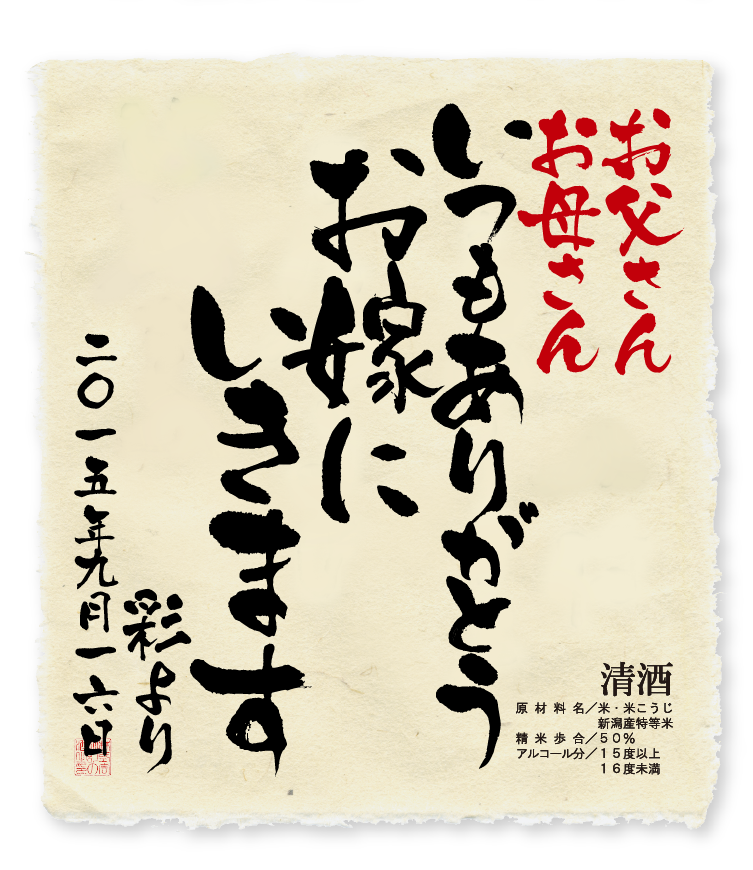 お父さん
お母さん
いつもありがとう
お嫁に
いきます
彩より
二〇一五年九月一六日
清酒
原材料名／米・米こうじ
新潟産特等米
精米歩合／50％
アルコール分／15度以上
16度未満